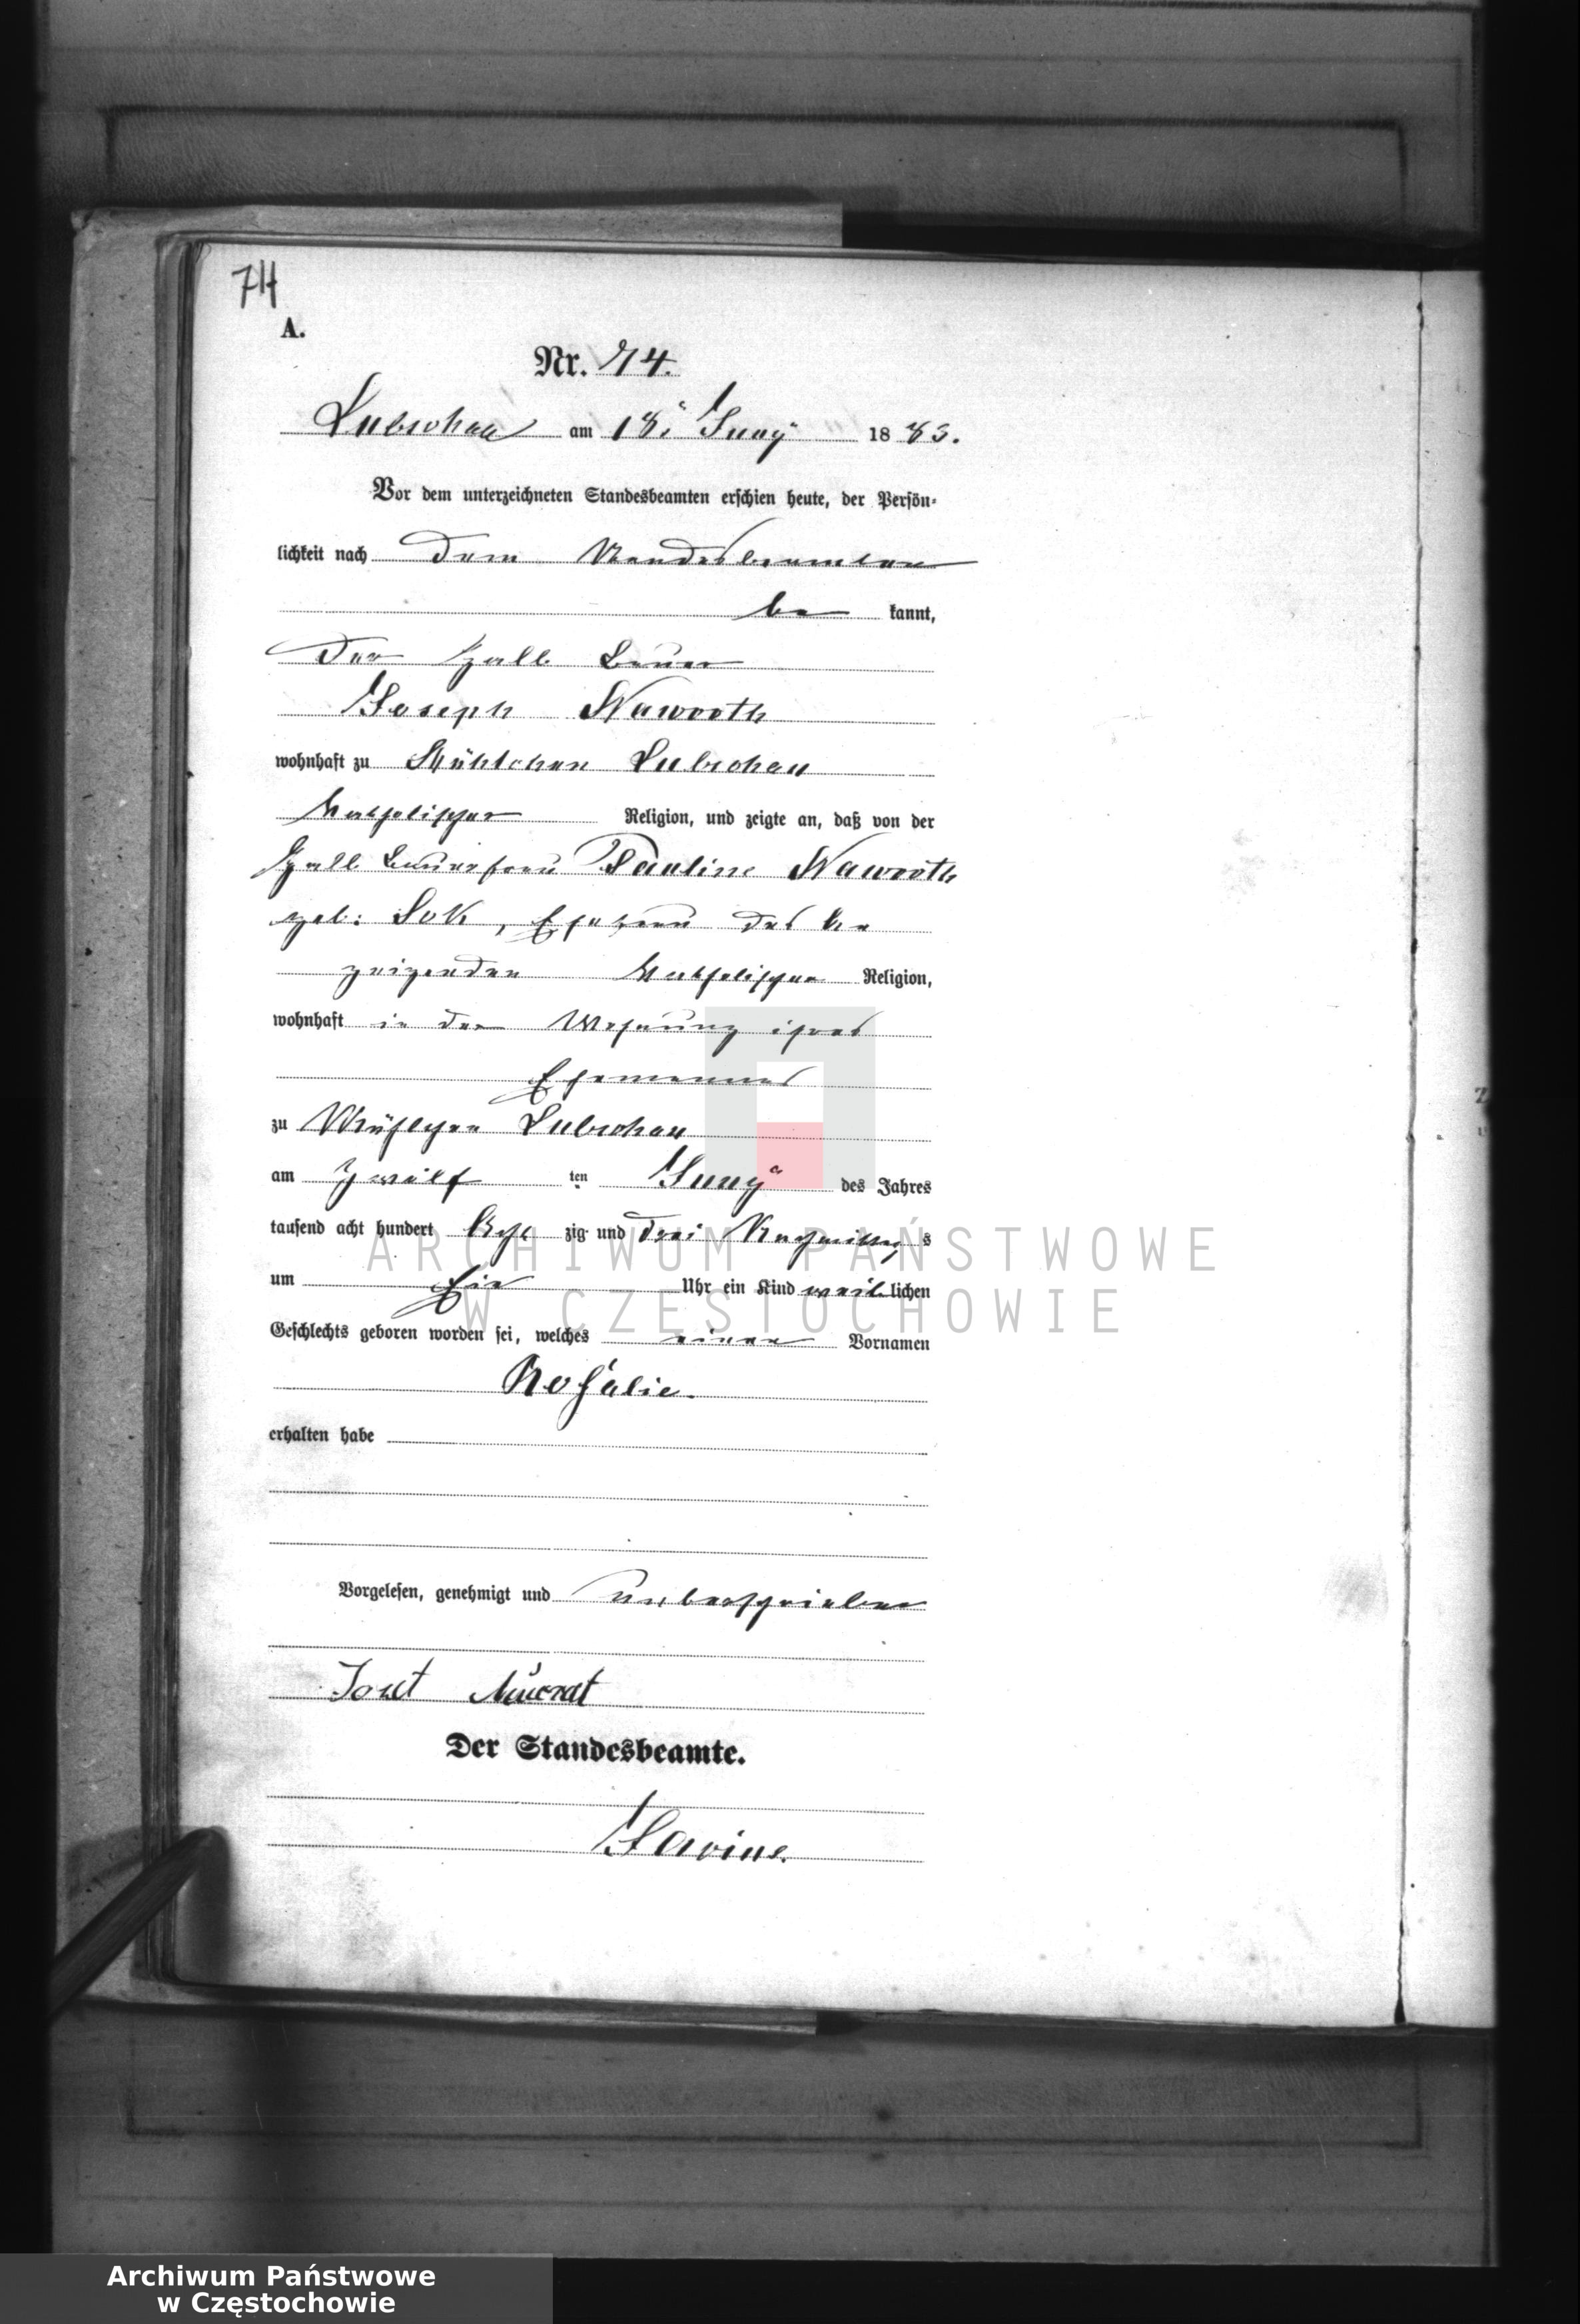 74
A.
Nr. 74.
Lubschau am 18. Juny 1883.
Vor dem unterzeichneten Standesbeamten erschien heute, der Persön-
lichkeit nach dem Standesbeamten
be kannt,
der Halb Bauer
Joseph Nawroth
wohnhaft zu Mühlchen Lubschau
katholischer Religion, und zeigte an, daß von der
Halb Bauersfrau Pauline Nawroth
geb: Sok, Ehefrau des An
zeigenden katholischer Religion,
wohnhaft in der Wohnung ihres
Ehemannes
zu Mühlchen Lubschau
am Zwölf ten Juny des Jahres
tausend acht hundert Acht zig und drei Nachmittags
um Ein Uhr ein Kind weiblichen
Geschlechts geboren worden sei, welches einen Vornamen
Rosalie.
erhalten habe
Vorgelesen, genehmigt und unterschrieben
Der Standesbeamte.
ARCHIWUM PAŃSTWOWE
W CZĘSTOCHOWIE
Archiwum Państwowe
w Częstochowie